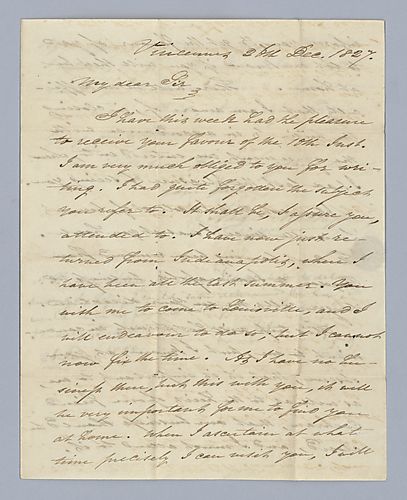 Vincennes 26th Dec. 1827.
My dear Sir
I have this week had the pleasure
to receive your favour of the 18th Inst.
I am very much obliged to you for wri-
ting. I had quite forgotten the subject
you refer to. It shall be, I assure you,
attended to. I have now just re-
turned from Indianapolis, where I
have been all the last summer. You
wish me to come to Louisville, and I
will endeavour to do so, but I cannot
now fix the time. As I have no bu-
siness there, but this with you, it will
be very important for me to find you
at home. When I ascertain at what
time precisely I can visit you, I will